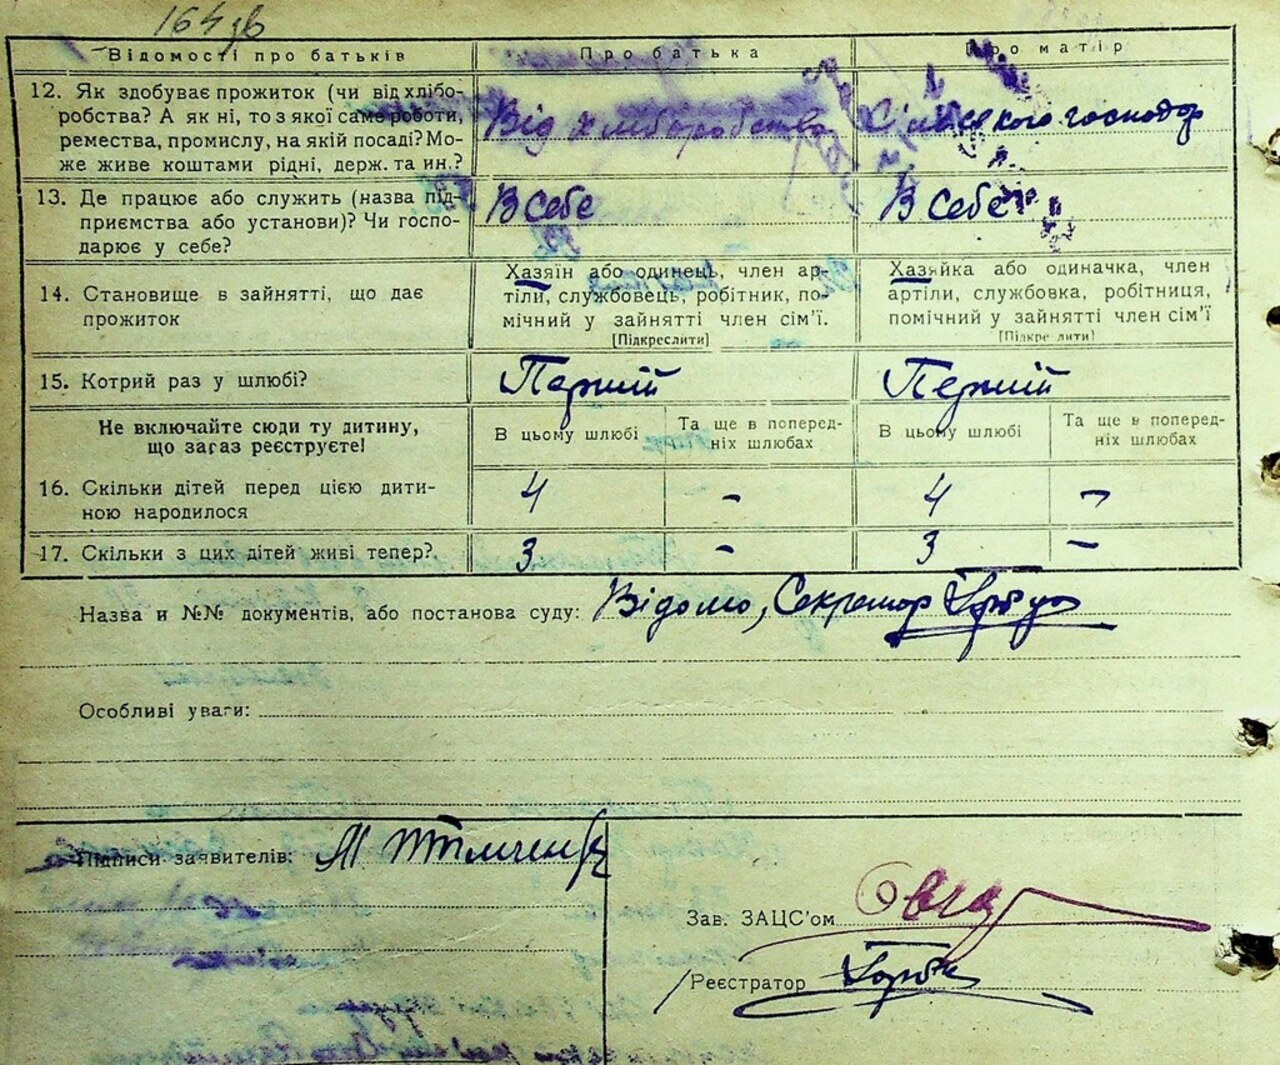 164 зв
Відомості про батьків
Про батька
Про матір
12. Як здобуває прожиток (чи від хлібо-
робства? А як ні, то з якої саме роботи,
ремества, промислу, на якій посаді? Мо-
же живе коштами рідні, держ. та ин.?
Від хліборобства
Сільського господар
13. Де працює або служить (назва під-
приємства або установи)? Чи госпо-
дарює у себе?
В себе
В себе
14. Становище в зайнятті, що дає
прожиток
Хазяїн або одинець, член ар-
тіли, службовець, робітник, по-
мічний у зайнятті член сім'ї.
[Підкреслити]
Хазяйка або одиначка, член
артіли, службовка, робітниця,
помічний у зайнятті член сім'ї
[Підкреслити]
15. Котрий раз у шлюбі?
Перший
Перший
Не включайте сюди ту дитину,
що загаз реєструєте!
В цьому шлюбі
Та ще в поперед-
ніх шлюбах
В цьому шлюбі
Та ще в поперед-
ніх шлюбах
16. Скільки дітей перед цією дити-
ною народилося
4
-
4
-
17. Скільки з цих дітей живі тепер?
3
-
3
-
Назва и №№ документів, або постанова суду: Відомо, Секретар
Особливі уваги:
Підписи заявителів:
Зав. ЗАЦС'ом
Реєстратор